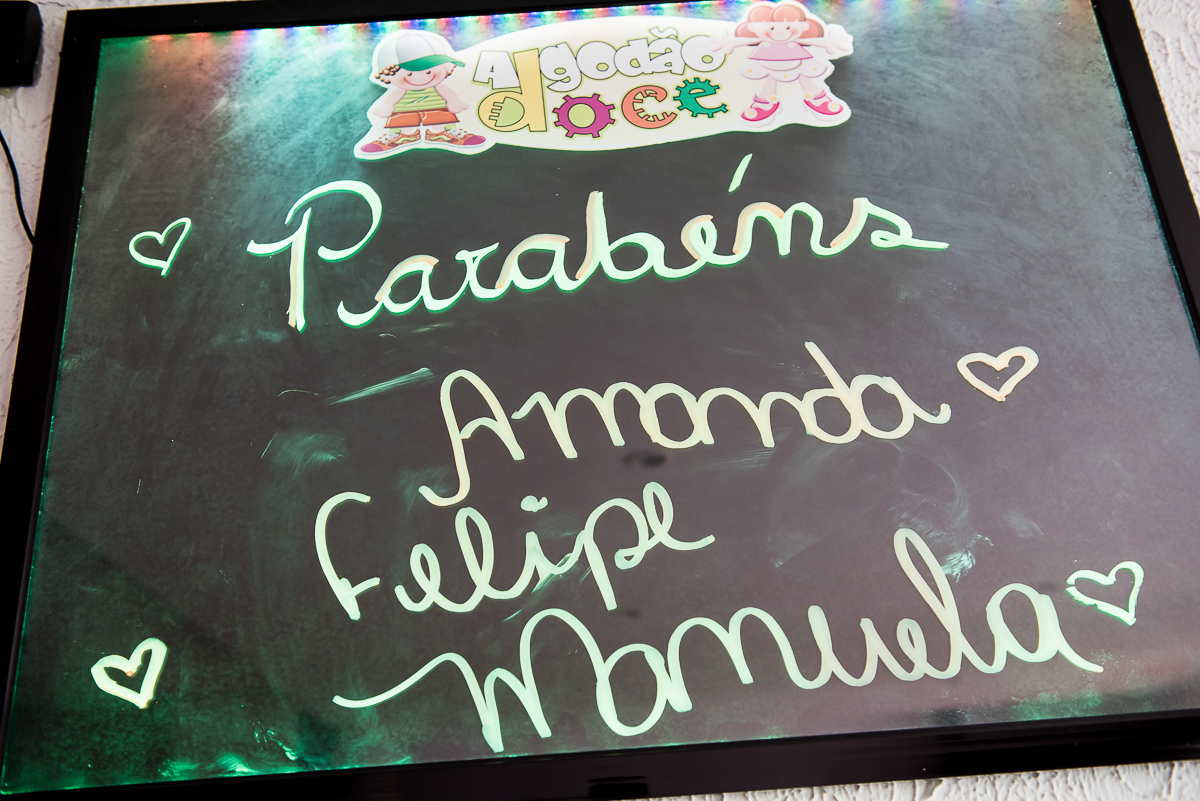 Algodão
doce
Parabéns
Amanda
Felipe
Manuela